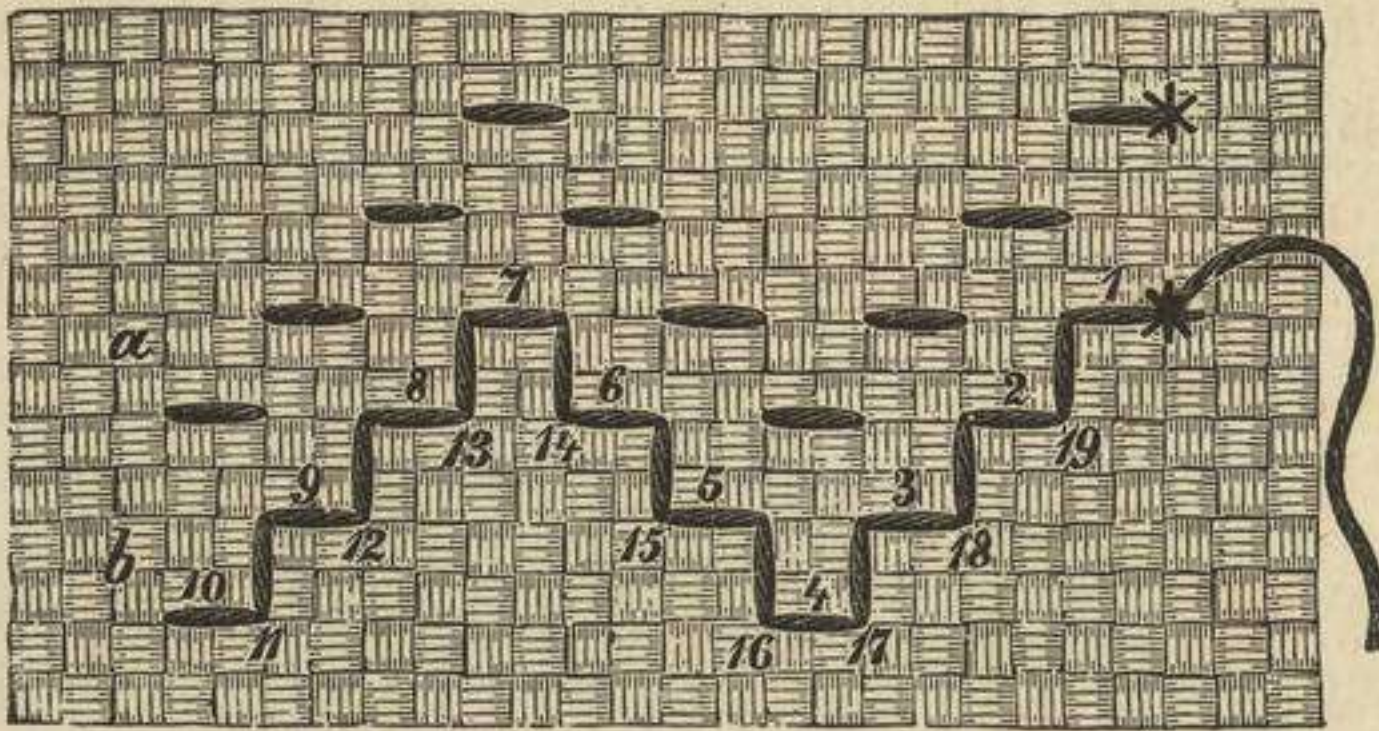 7 1
a
8 6 2
13 14 19
9 5 3
12 15 18
b
10 4
11 16 17